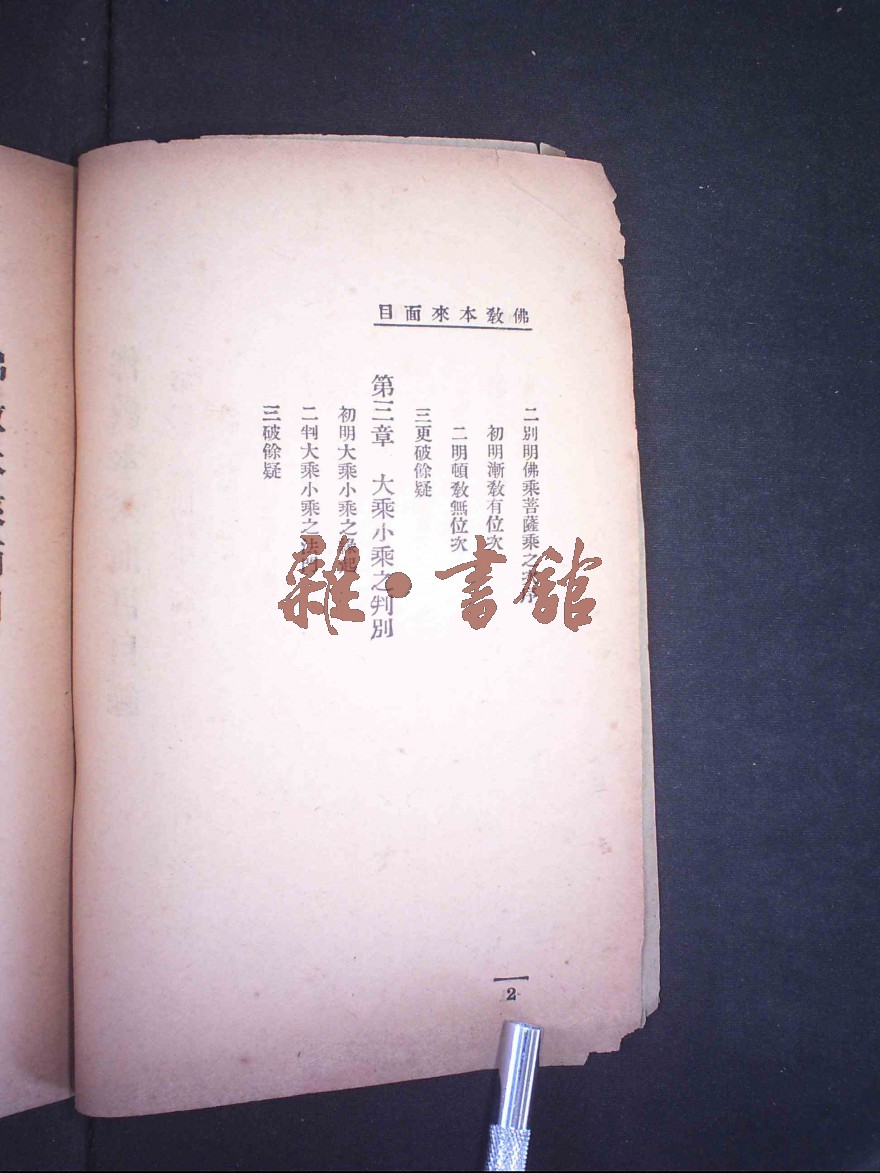 佛敎本來面目
二別明佛乘菩薩乘之
初明漸敎有位次
二明頓敎無位次
三更破餘疑
第三章　大乘小乘之判別
初明大乘小乘之緣起
二判大乘小乘之法門
三破餘疑
雜・書館
2